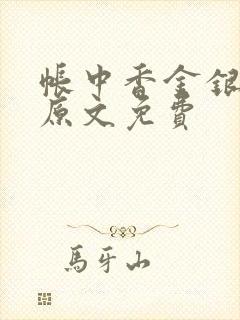 帳中香金銀
原文免費
馬牙山